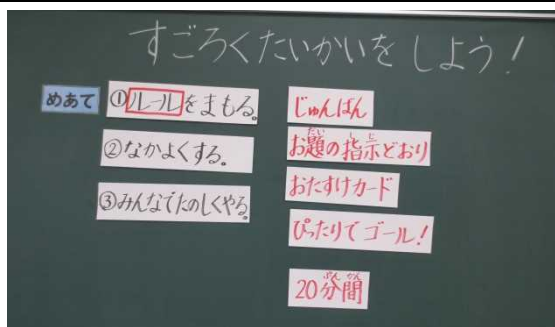 すごろくたいかいをしよう!
めあて
①ルールをまもる。
②なかよくする。
③みんなでたのしくやる。
じゅんばん
お題の指示どおり
おたすけカード
ぴったりでゴール!
20分間